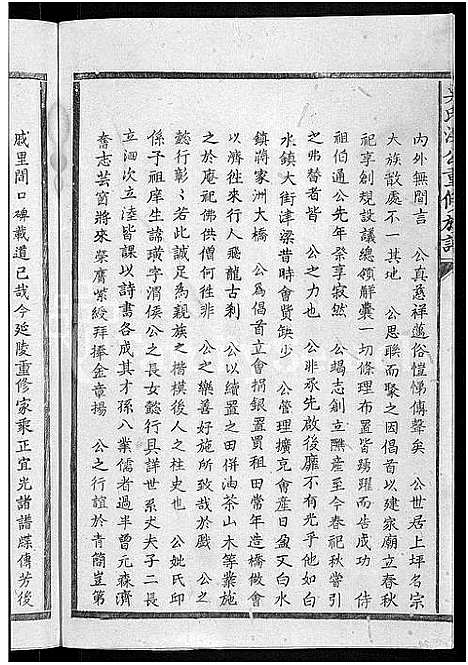 吳氏洪公重修族譜
內外無間言　公真慈祥藹俗愷悌傳聲矣　公世居上坪名宗
大族散處不一其地　公思聯而聚之因倡首以建家廟立春秋
祀享創規設議總領解囊一切條理布置皆踴躍而告成功　侍
祖伯通公先年祭享寂然　公竭志創立醮產至今春祀秋嘗引
之弗替者皆　公之力也　公非承先啟後靡不有光乎他如白
水鎮大街津梁昔時會貲缺少　公管理擴充會產日盈又白水
鎮蔣家洲大橋　公為倡首立會捐銀置買租田常年造橋徹會
以濟往來行人飛龍古剎　公以續置之田併油茶山木等業施
於以庵祀佛供僧何徃非　公之樂善好施所致哉於戲　公之
懿行彰彰若此誠足為親族之楷模後人之柱史也　公妣氏邱
係予祖庠生諱璜字渭侯公之長女懿行具詳世系丈夫子二長
立泗次立淕皆課以詩書各成其才孫八業儒者過半曾元森濟
奮志芸窗將來榮膺紫綬拜捧金章揚　公之行誼於青簡豈第
戚里間口碑載道已哉今延陵重修家乘正宜光諸譜牒傳芳後